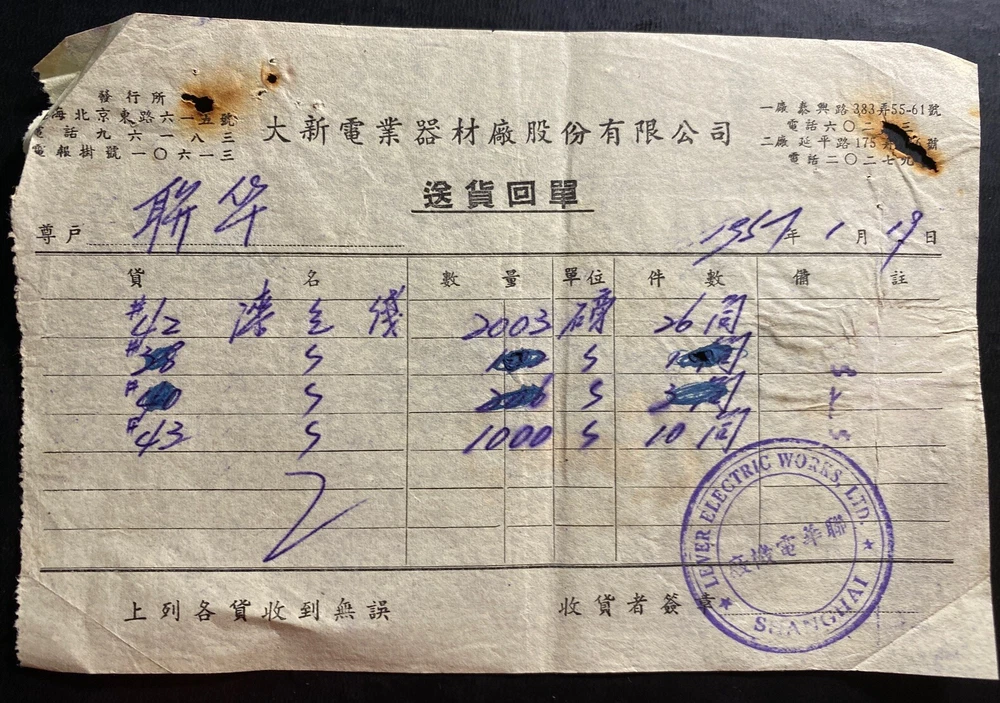 發行所
海北京東路六一五號
電話九六一八三
電報掛號一〇六一三
大新電業器材廠股份有限公司
一廠泰興路383弄55-61號
電話六〇二
二廠延平路175弄 號
電話二〇二七九
送貨回單
尊戶 聯华 1957年1月19日
貨名 數量 單位 件數 備註
#42 漆包线 2003 磅 26
#38 S S
# S S 3
#43 S 1000 S 10
上列各貨收到無誤 收貨者簽章
LEVER ELECTRIC WORKS, LTD.
聯華電機廠
SHANGHAI